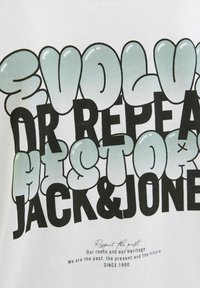 EVOLV
OR REPEA
HISTOR
JACK&JONE
Respect the past
Our roots and our heritage
We are the past, the present and the future
SINCE 1990